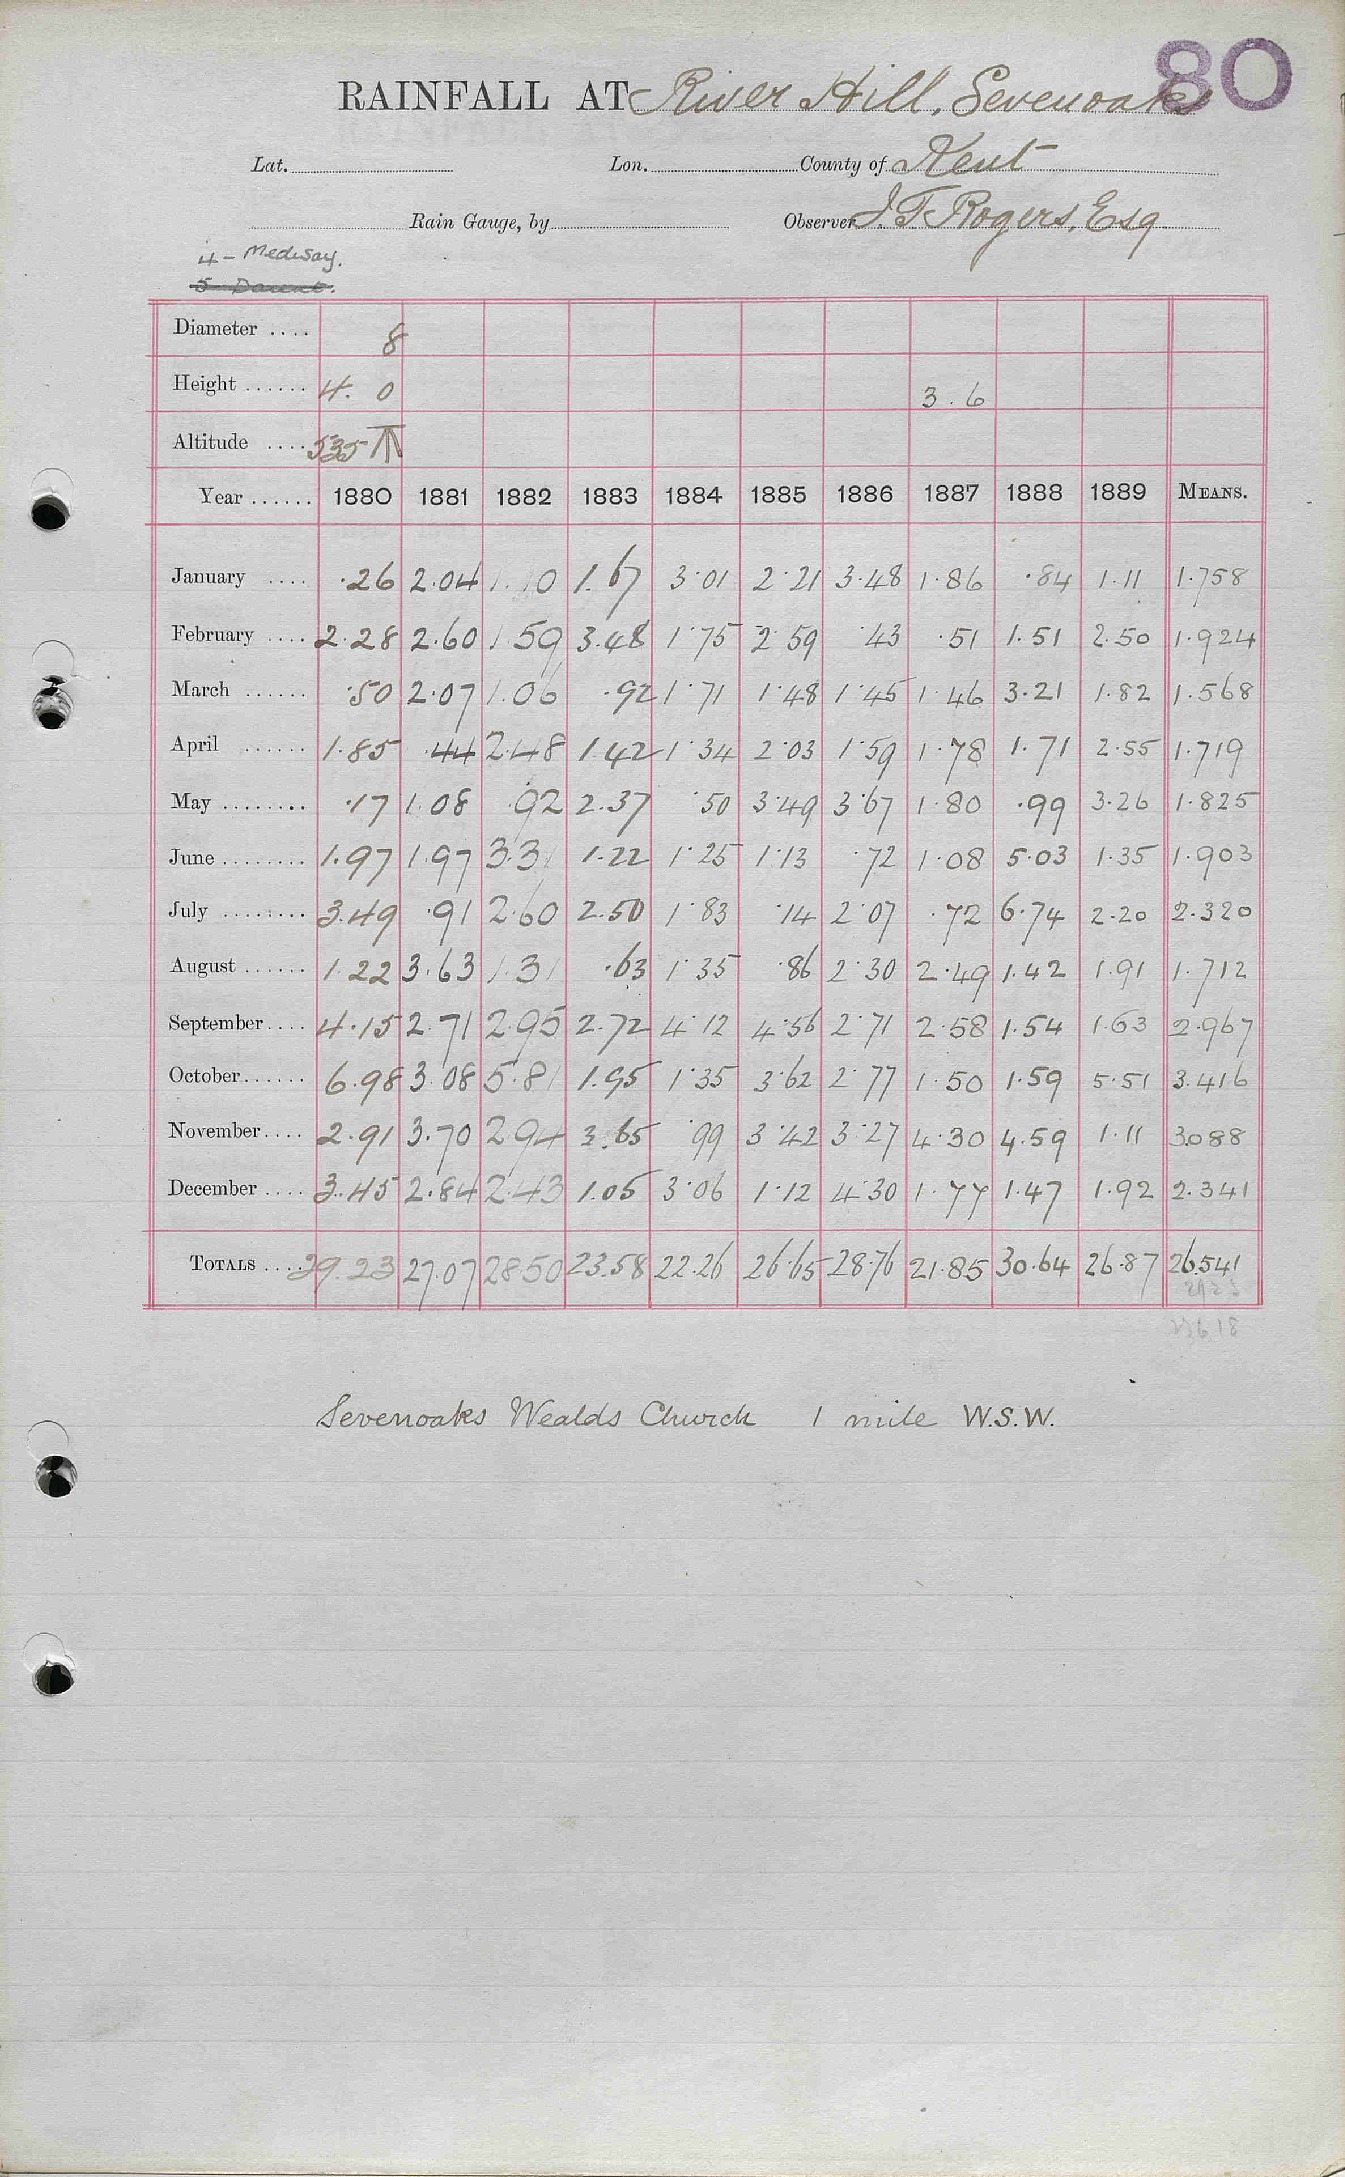 80
RAINFALL AT River Hill, Sevenoaks
Lat. Lon. County of Kent
Rain Gauge, by Observer J T Rogers, Esq
4 - Medway.
5 Darent.
Diameter .... 8
Height ...... 4. 0 3. 6
Altitude .... 535 T
Year ...... 1880 1881 1882 1883 1884 1885 1886 1887 1888 1889 MEANS.
January .... .26 2.04 1.10 1.67 3.01 2.21 3.48 1.86 .84 1.11 1.758
February .... 2.28 2.60 1.59 3.48 1.75 2.59 .43 .51 1.51 2.50 1.924
March ...... .50 2.07 1.06 .92 1.71 1.48 1.45 1.46 3.21 1.82 1.568
April ...... 1.85 .44 2.48 1.42 1.34 2.03 1.59 1.78 1.71 2.55 1.719
May ........ .17 1.08 .92 2.37 .50 3.49 3.67 1.80 .99 3.26 1.825
June ........ 1.97 1.97 3.31 1.22 1.25 1.13 .72 1.08 5.03 1.35 1.903
July ........ 3.49 .91 2.60 2.50 1.83 .14 2.07 .72 6.74 2.20 2.320
August ...... 1.22 3.63 1.31 .63 1.35 .86 2.30 2.49 1.42 1.91 1.712
September .... 4.15 2.71 2.95 2.72 4.12 4.56 2.71 2.58 1.54 1.63 2.967
October ...... 6.98 3.08 5.81 1.95 1.35 3.62 2.77 1.50 1.59 5.51 3.416
November .... 2.91 3.70 2.94 3.65 .99 3.42 3.27 4.30 4.59 1.11 3.088
December .... 3.45 2.84 2.43 1.05 3.06 1.12 4.30 1.77 1.47 1.92 2.341
TOTALS .... 29.23 27.07 28.50 23.58 22.26 26.65 28.76 21.85 30.64 26.87 26.541
Sevenoaks Wealds Church 1 mile W.S.W.